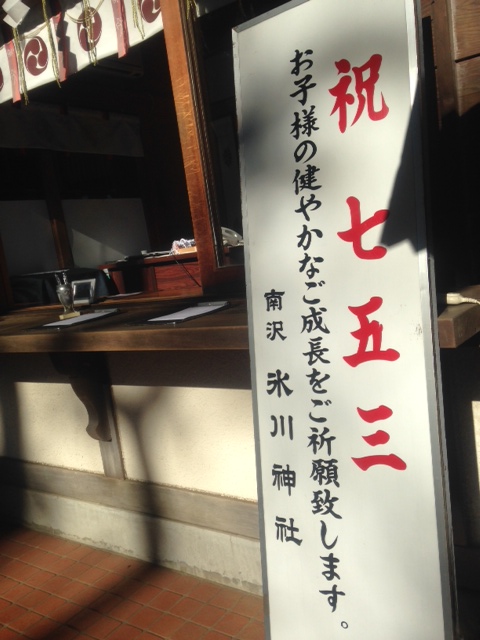 祝七五三
お子様の健やかなご成長をご祈願致します。
南沢 氷川神社